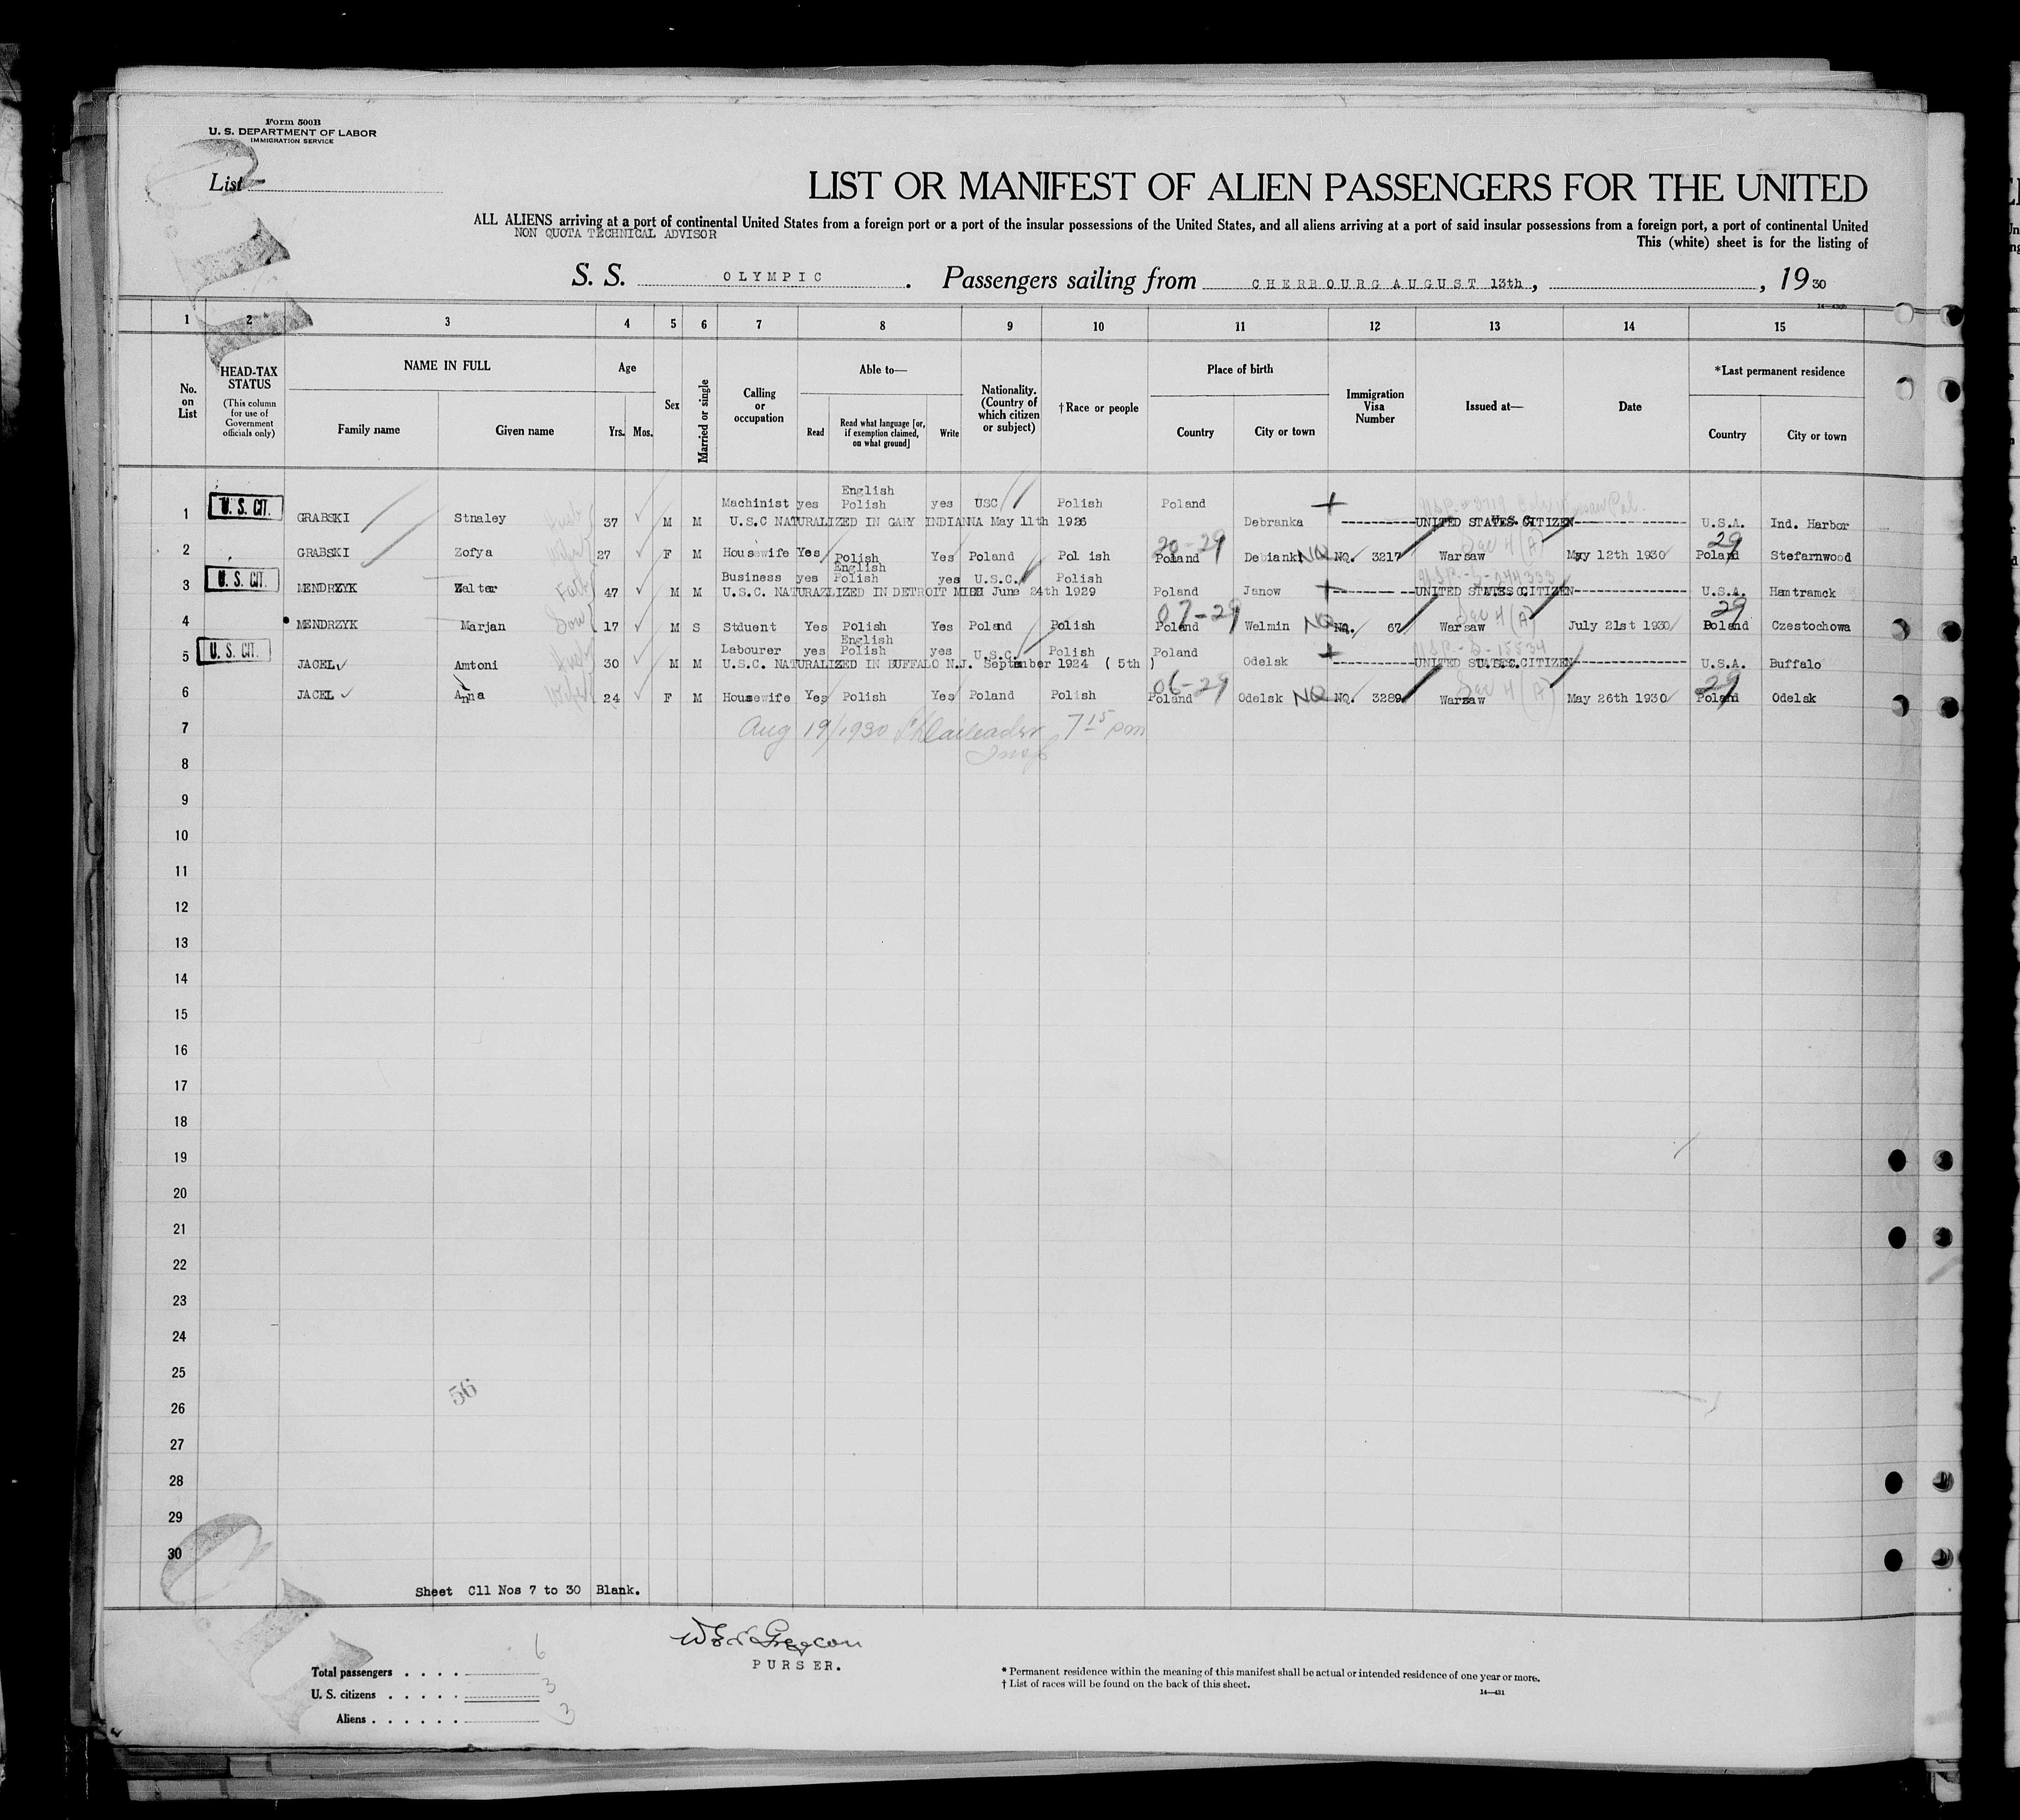 Form 500B
U. S. DEPARTMENT OF LABOR
IMMIGRATION SERVICE
List
LIST OR MANIFEST OF ALIEN PASSENGERS FOR THE UNITED
ALL ALIENS arriving at a port of continental United States from a foreign port or a port of the insular possessions of the United States, and all aliens arriving at a port of said insular possessions from a foreign port, a port of continental United
NON QUOTA TECHNICAL ADVISOR
This (white) sheet is for the listing of
S. S. OLYMPIC. Passengers sailing from CHERBOURG AUGUST 13th, , 19 30
1 2 3 4 5 6 7 8 9 10 11 12 13 14 15
No. on List
HEAD-TAX STATUS
(This column for use of Government officials only)
NAME IN FULL
Family name
Given name
Age
Yrs. Mos.
Sex
Married or single
Calling or occupation
Able to—
Read
Read what language [or, if exemption claimed, on what ground]
Write
Nationality. (Country of which citizen or subject)
†Race or people
Place of birth
Country
City or town
Immigration Visa Number
Issued at—
Date
*Last permanent residence
Country
City or town
1 U. S. CIT. GRABSKI Stnaley 37 M M Machinist yes English Polish yes USC Polish Poland Debranka UNITED STATES CITIZEN U.S.A. Ind. Harbor
U.S.C NATURALIZED IN GARY INDIANNA May 11th 1926
2 GRABSKI Zofya 27 F M Housewife Yes Polish Yes Poland Pol ish 20-29 Poland Debiank NQ NQ. 3217 Warsaw Sec 4 (A) May 12th 1930 29 Poland Stefarnwood
3 U. S. CIT. MENDRZYK Walter 47 M M Business yes English Polish yes U.S.C. Polish Poland Janow UNITED STATES CITIZEN U.S.A. Hamtramck
U.S.C. NATURAZLIZED IN DETROIT MICH June 24th 1929
4 MENDRZYK Marjan Son 17 M S Stduent Yes Polish Yes Poland Polish 07-29 Poland Welmin NQ NQ. 67 Warsaw Sec 4 (A) July 21st 1930 29 Poland Czestochowa
5 U. S. CIT. JACEL Amtoni 30 M M Labourer yes English Polish yes U.S.C. Polish Poland Odelsk UNITED STATES CITIZEN U.S.A. Buffalo
U.S.C. NATURALIZED IN BUFFALO N.J. September 1924 ( 5th )
6 JACEL Anna 24 F M Housewife Yes Polish Yes Poland Polish 06-29 Poland Odelsk NQ NQ. 3289 Warsaw Sec 4 (A) May 26th 1930 29 Poland Odelsk
7 Aug 19/1930 7 15 pm
Insp
8
9
10
11
12
13
14
15
16
17
18
19
20
21
22
23
24
25
56
26
27
28
29
30
Sheet C11 Nos 7 to 30 Blank.
PURSER.
Total passengers . . . . 6
U. S. citizens . . . . . 3
Aliens . . . . . . 3
* Permanent residence within the meaning of this manifest shall be actual or intended residence of one year or more.
† List of races will be found on the back of this sheet.
14—431